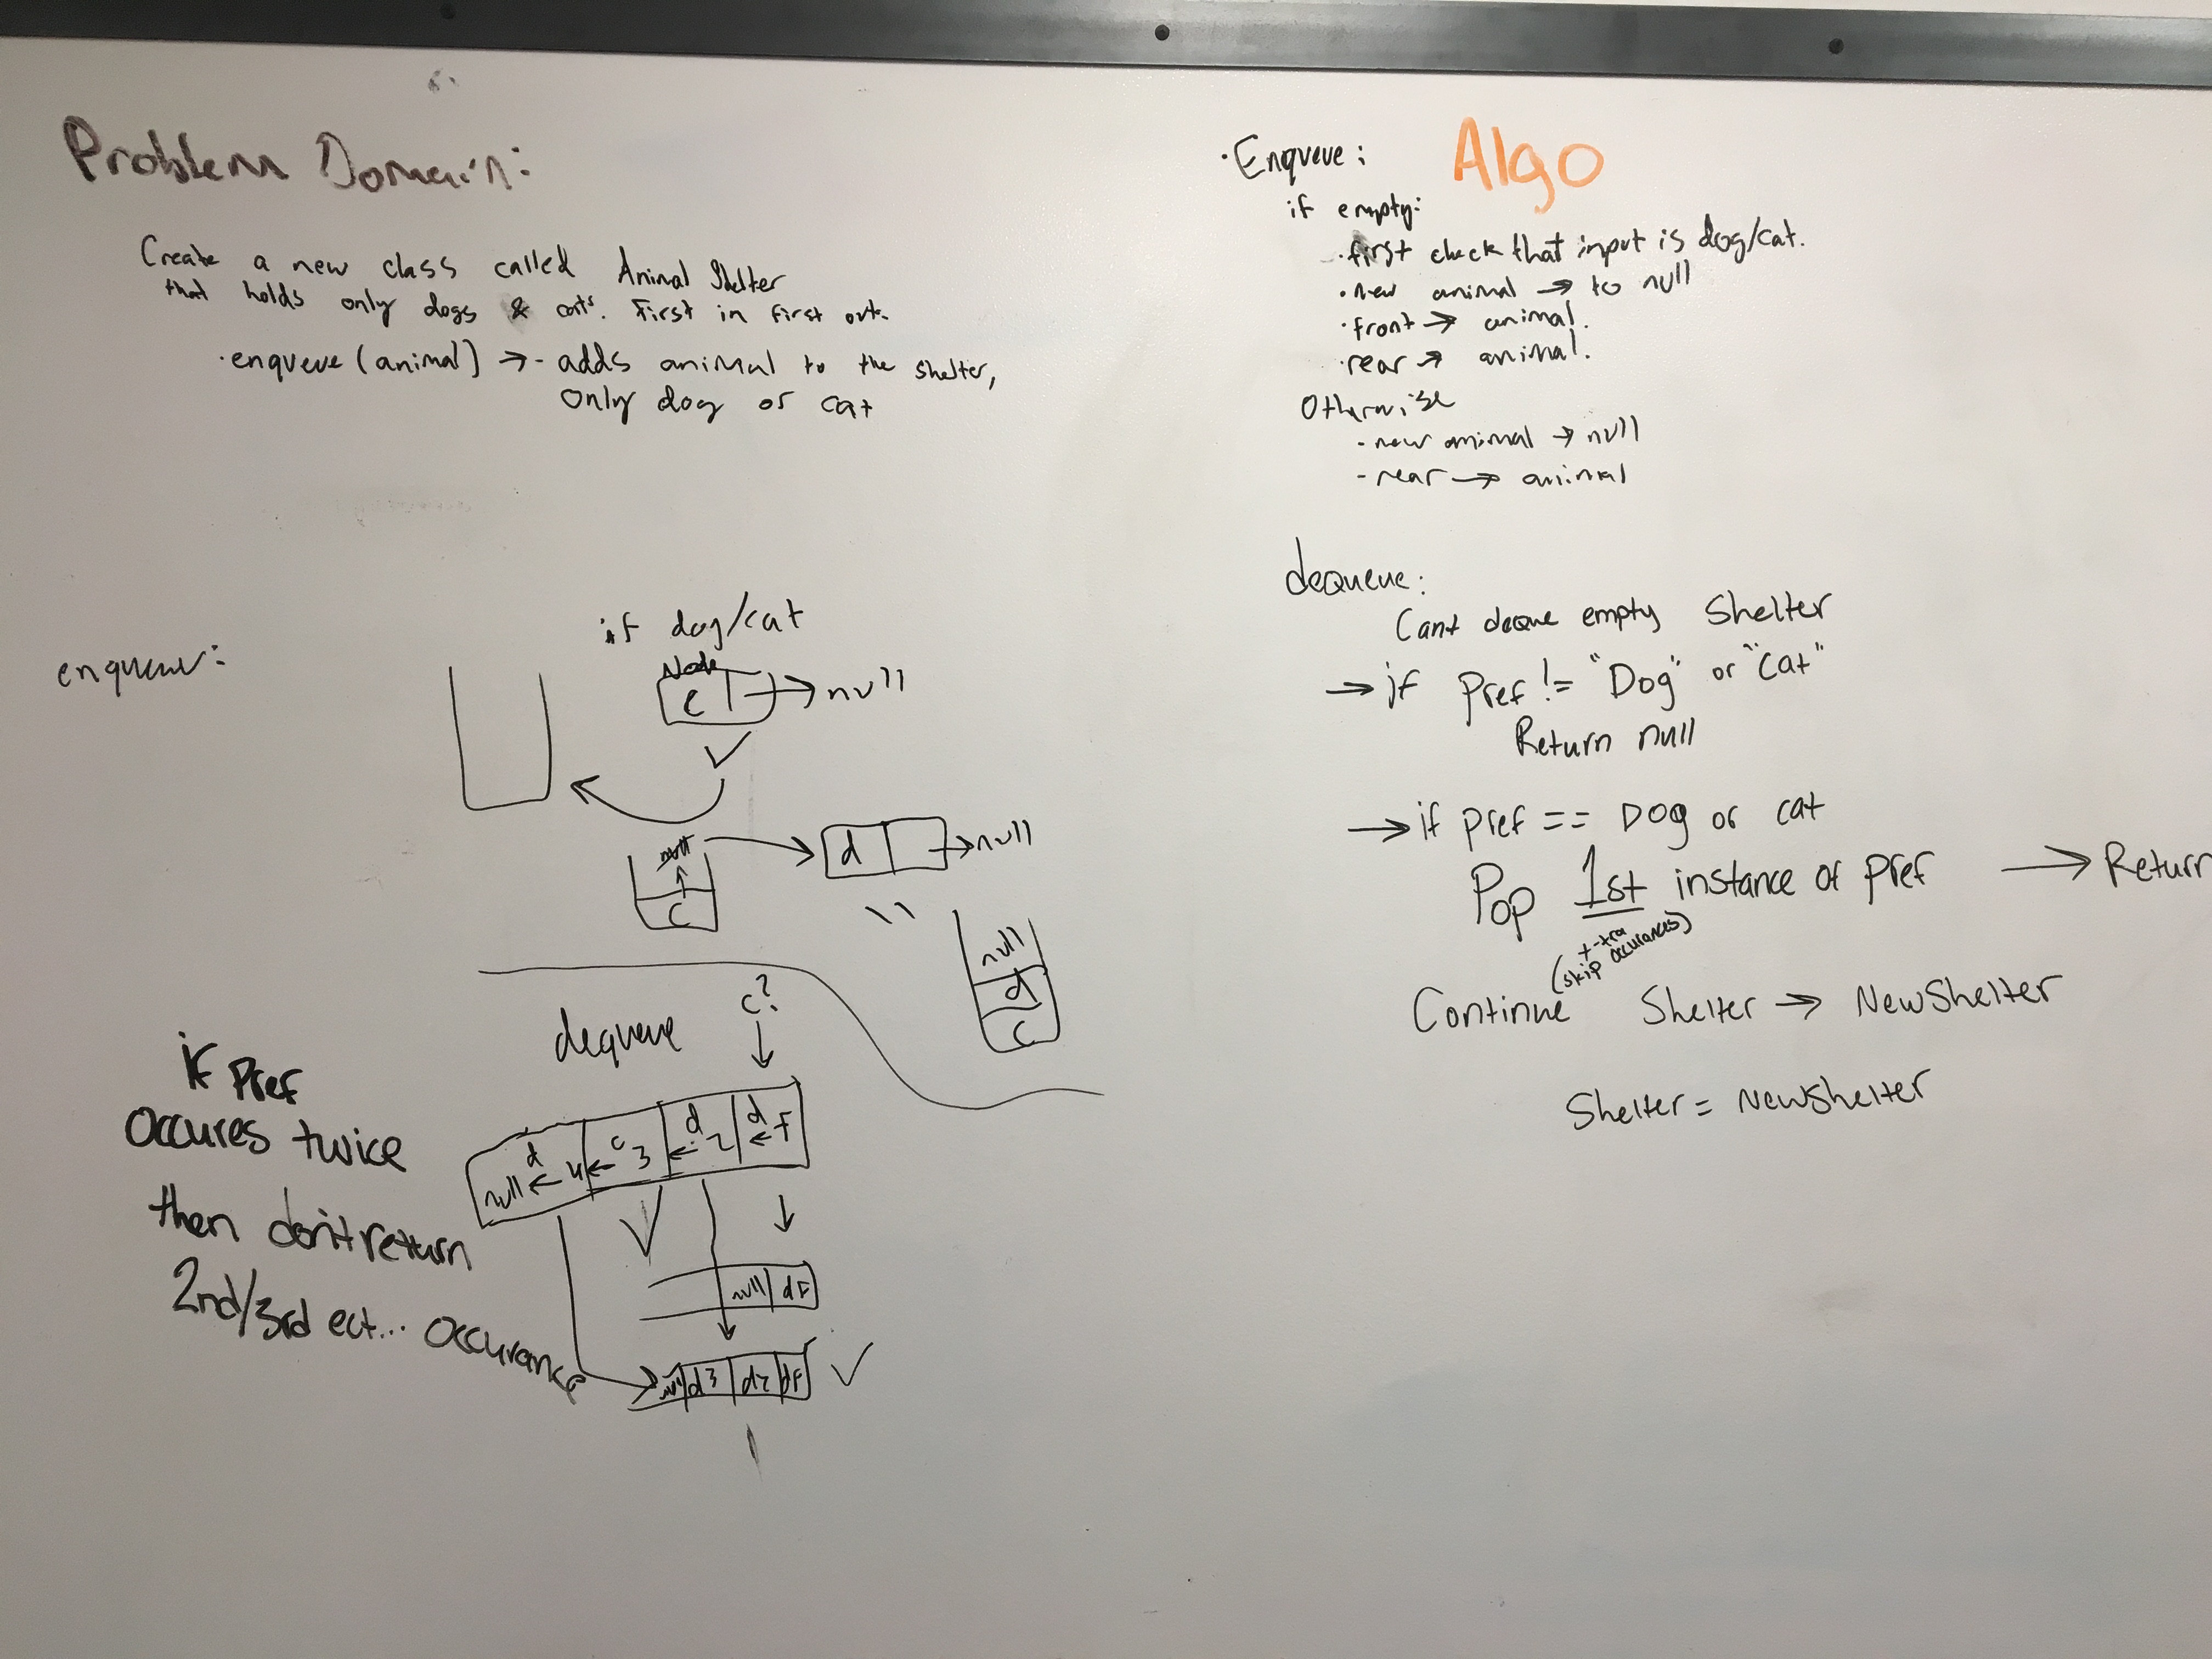 Problem Domain:
Create a new class called Animal Shelter
that holds only dogs & cats. First in first out.
· enqueue (animal) → - adds animal to the shelter,
only dog or cat
enqueue:
if dog/cat
Node
c → null
null → d → null
c
null
d
c
dequeue c?
if Pref
occures twice
then don't return
2nd/3rd ect... occurance
d c d d
null ← 4 ← 3 ← 2 ← F
null dF
null d3 d2 dF
Algo
· Enqueue:
if empty:
· first check that input is dog/cat.
· new animal → to null
· front → animal.
· rear → animal.
Otherwise
- new animal → null
- rear → animal
dequeue:
Cant deque empty Shelter
→ if Pref != "Dog" or "Cat"
Return null
→ if pref == Dog or cat
Pop 1st instance of pref → Return
(skip occurances)
Continue Shelter → NewShelter
Shelter = NewShelter